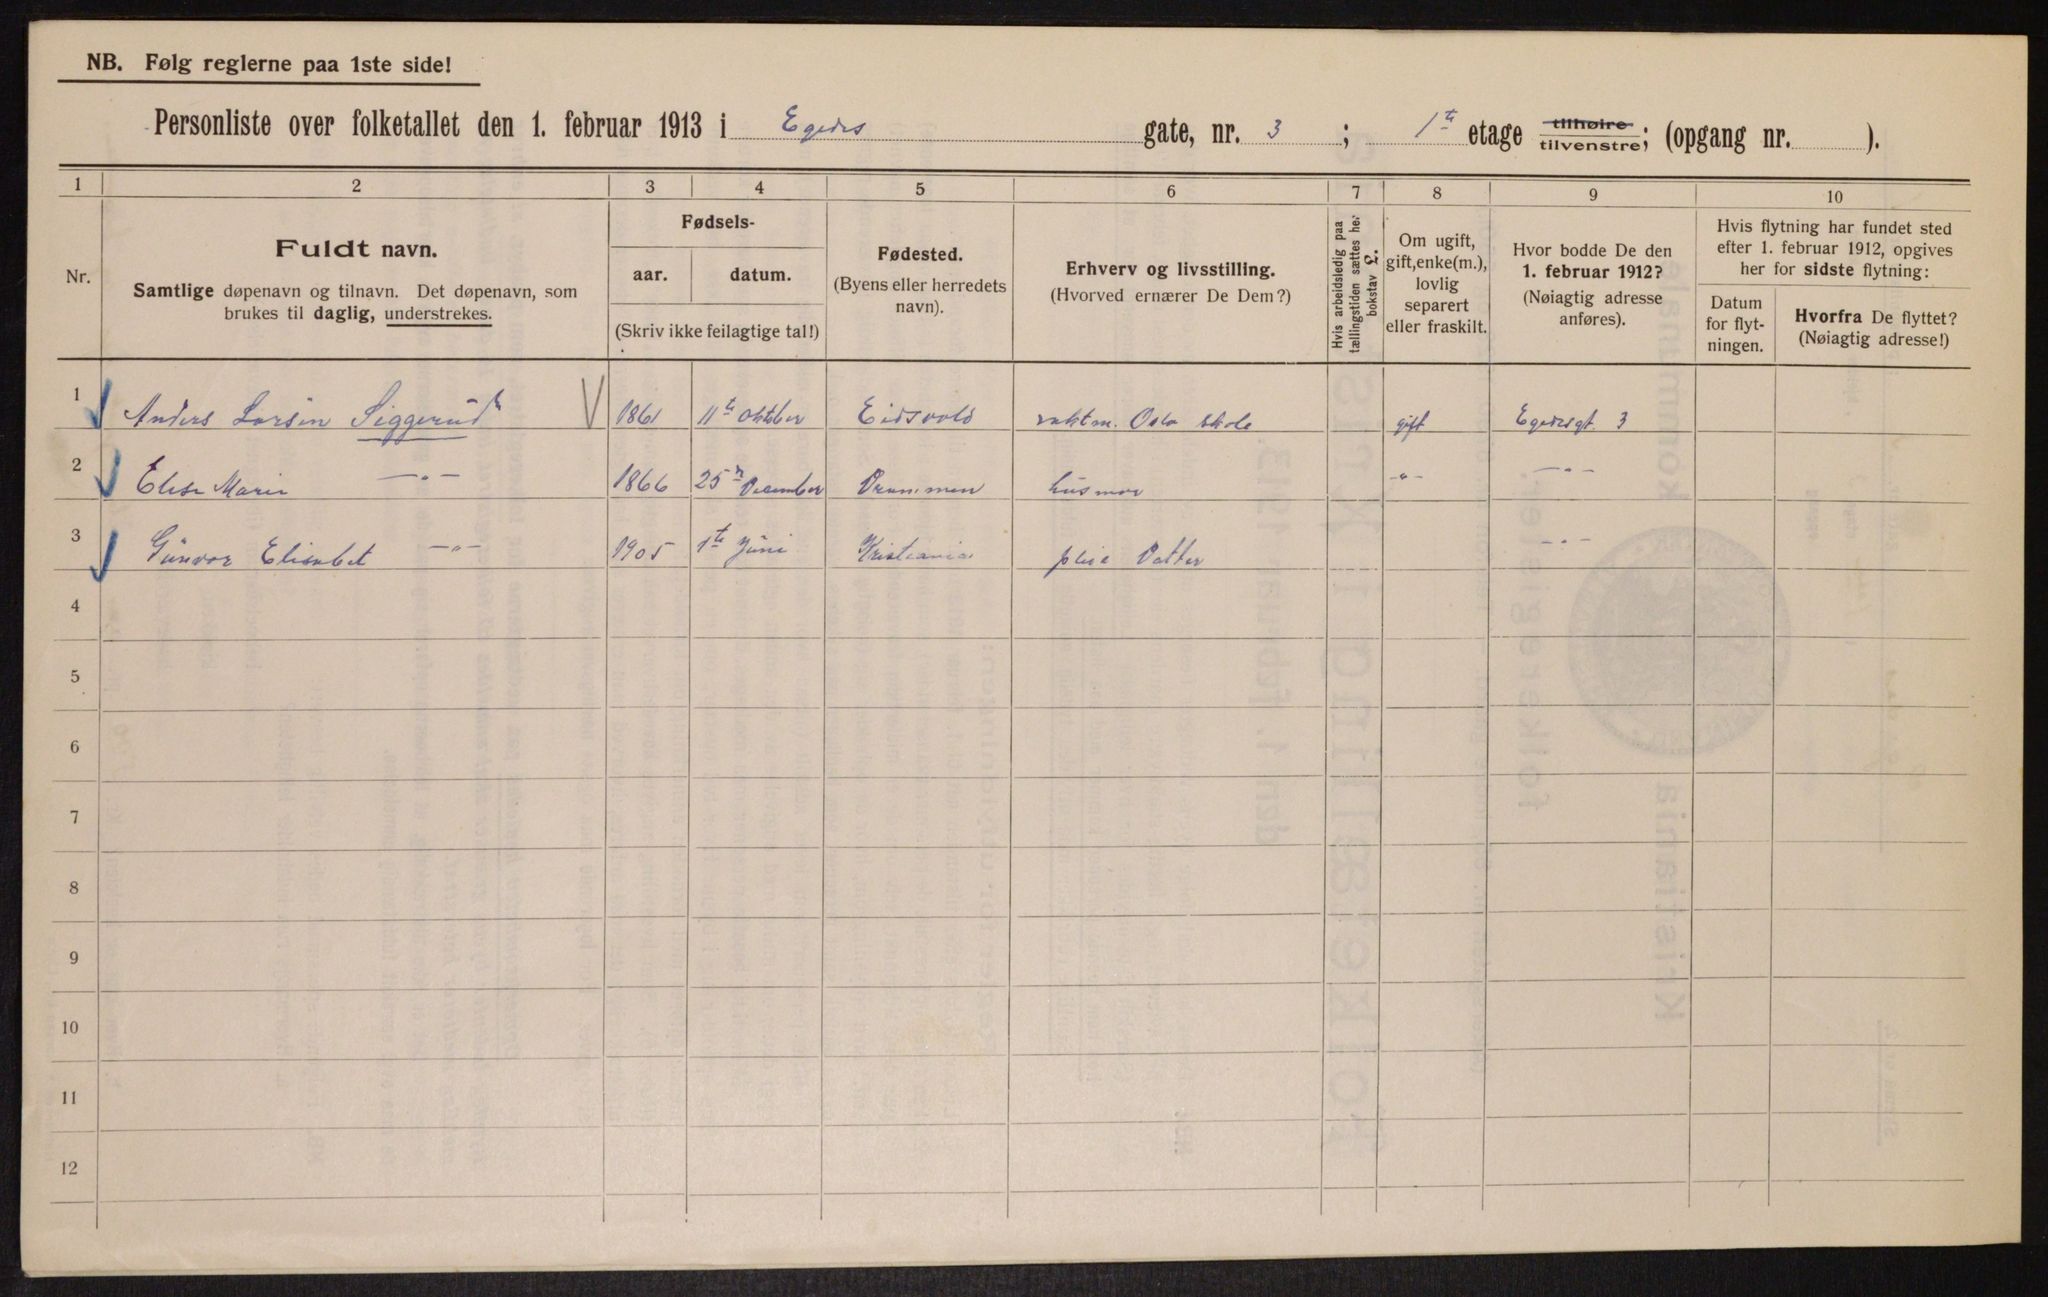 NB. Følg reglerne paa 1ste side!
Personliste over folketallet den 1. februar 1913 i Egedes gate, nr. 3 ; 1ste etage tilhøire tilvenstre; (opgang nr. ).
1 2 3 4 5 6 7 8 9 10
Nr.
Fuldt navn.
Samtlige døpenavn og tilnavn. Det døpenavn, som
brukes til daglig, understrekes.
Fødsels-
aar. datum.
(Skriv ikke feilagtige tal!)
Fødested.
(Byens eller herredets
navn).
Erhverv og livsstilling.
(Hvorved ernærer De Dem?)
Hvis arbeidsledig paa
tællingstiden sættes her
bokstav L.
Om ugift,
gift, enke(m.),
lovlig
separert
eller fraskilt.
Hvor bodde De den
1. februar 1912?
(Nøiagtig adresse
anføres).
Hvis flytning har fundet sted
efter 1. februar 1912, opgives
her for sidste flytning:
Datum
for flyt-
ningen.
Hvorfra De flyttet?
(Nøiagtig adresse!)
1 Anders Larsen Siggerud 1861 11te Oktober Eidsvold vaktm. Oslo skole gift Egedesgt. 3
2 Elise Marie —"— 1866 25 December Drammen husmor —"— —"—
3 Gunvor Elisabet —"— 1905 1te Juni Kristiania Datter —"—
4
5
6
7
8
9
10
11
12